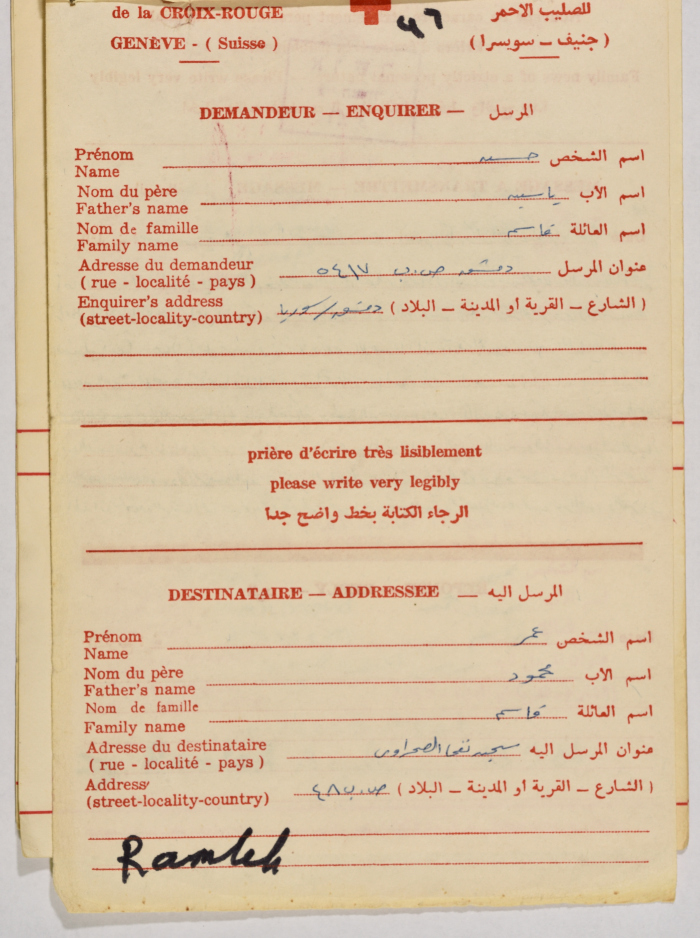 de la CROIX-ROUGE للصليب الاحمر
47
GENÈVE - ( Suisse ) ( جنيف ــ سويسرا )
DEMANDEUR — ENQUIRER — المرسل
Prénom
Name اسم الشخص حسين
Nom du père
Father's name اسم الأب ياسين
Nom de famille
Family name اسم العائلة قاسم
Adresse du demandeur
( rue - localité - pays ) عنوان المرسل دمشق ص.ب ٥٤١٧
Enquirer's address
(street-locality-country) ( الشارع ــ القرية او المدينة ــ البلاد ) دمشق / سوريا
prière d'écrire très lisiblement
please write very legibly
الرجاء الكتابة بخط واضح جداً
DESTINATAIRE — ADDRESSEE — المرسل اليه
Prénom
Name اسم الشخص عمر
Nom du père
Father's name اسم الأب محمود
Nom de famille
Family name اسم العائلة قاسم
Adresse du destinataire
( rue - localité - pays ) عنوان المرسل اليه الصحراوي
Address
(street-locality-country) ( الشارع ــ القرية او المدينة ــ البلاد ) ص.ب ٤٨
Ramleh